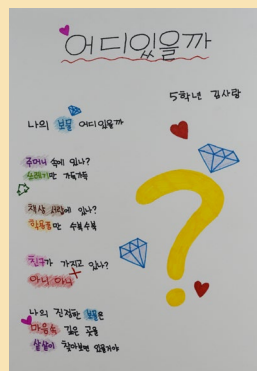 어디있을까
5학년 김사랑
나의 보물 어디있을까
주머니 속에 있나?
쓰레기만 가득가득
책상 서랍에 있나?
학용품만 수북수북
친구가 가지고 있나?
아니 아니
나의 진정한 보물은
마음속 깊은 곳을
샅샅이 찾아보면 있을거야